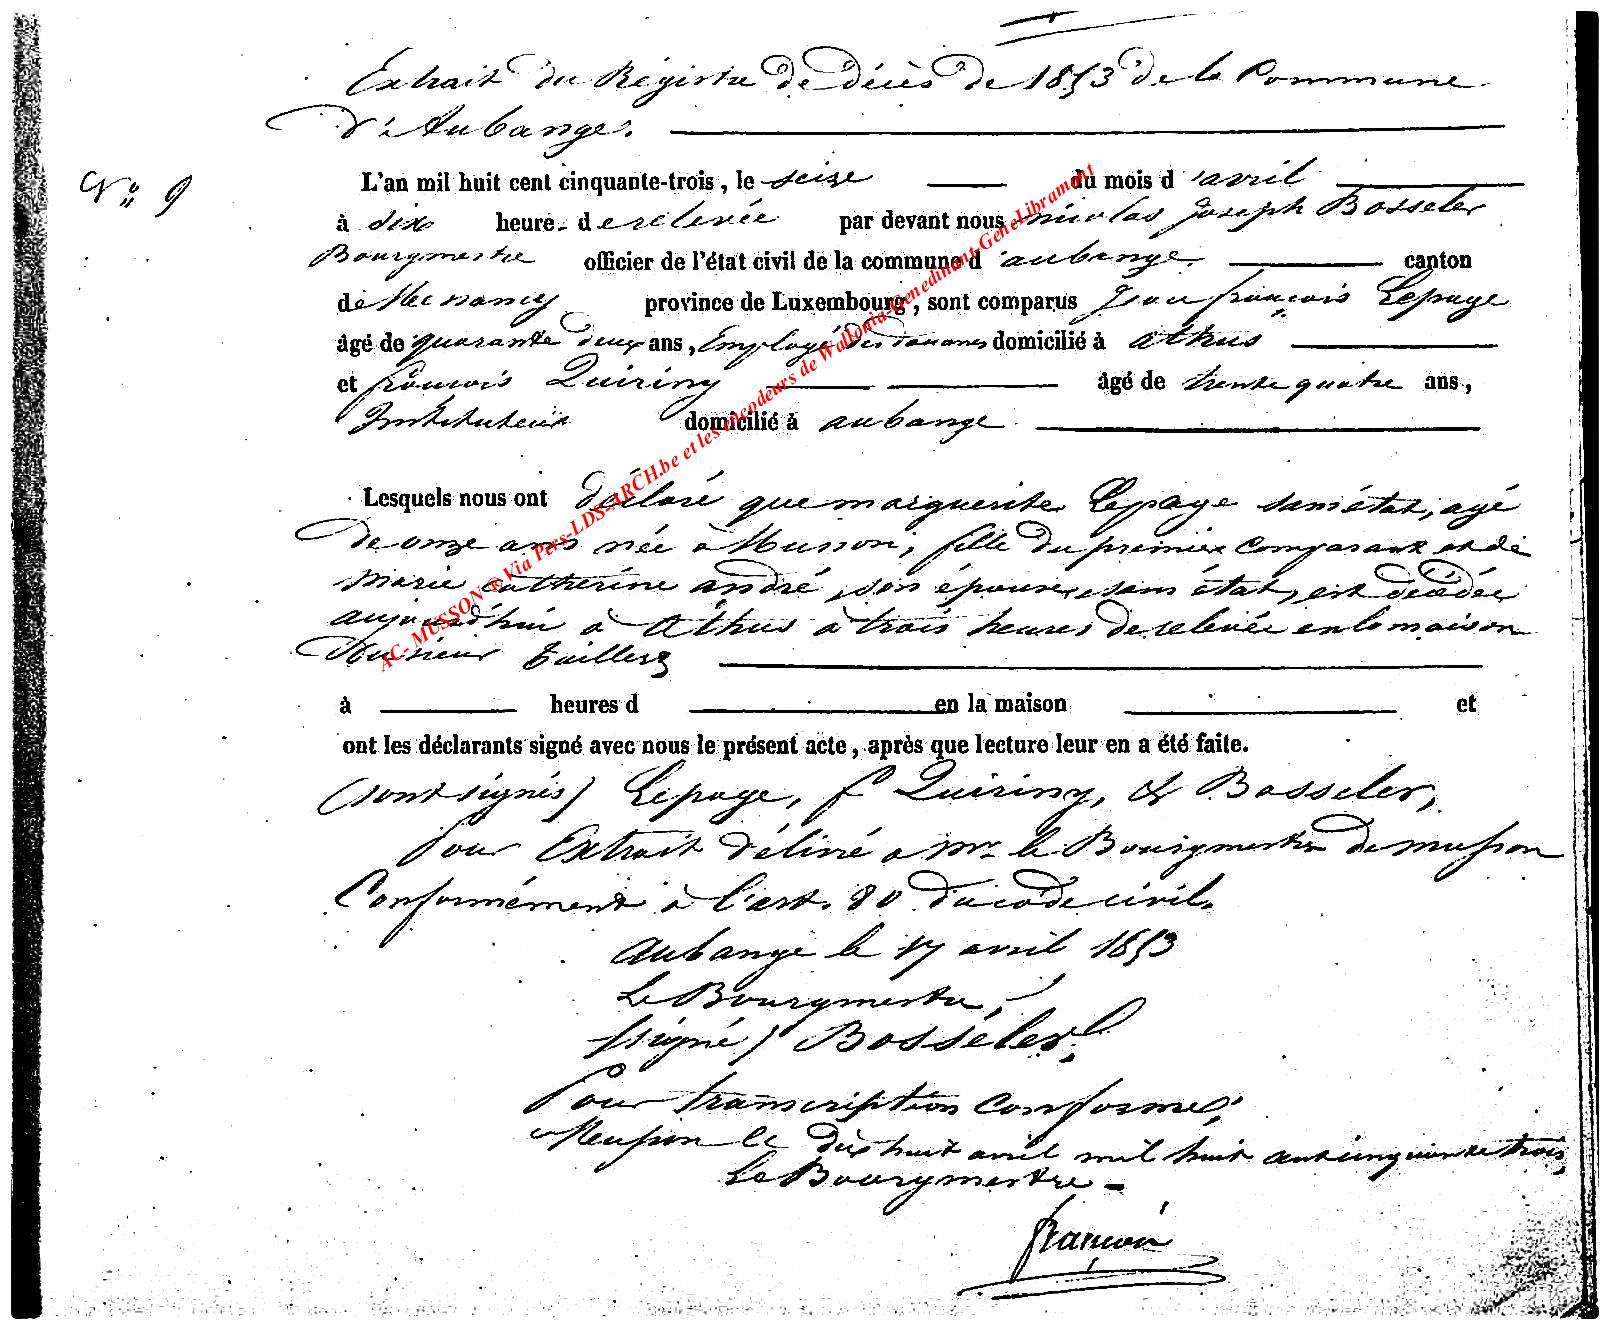 Extrait du Régistre de décès de 1853 de la Commune
d'Aubange.
N° 9
L'an mil huit cent cinquante-trois, le seize du mois d'avril
à dix heure d e relevée par devant nous nicolas Joseph Bosseler
Bourgmestre officier de l'état civil de la commune d'aubange. canton
de Messancy province de Luxembourg, sont comparus Jean françois Lepage
âgé de quarante deux ans, Employé des douanes domicilié à athus
et françois Quiriny âgé de trente quatre ans,
Instituteur domicilié à aubange
Lesquels nous ont déclaré que marguerite Lepage sans état, agé
de onze ans née à Musson, fille du premier comparant et de
Marie catherine andré, son épouse, sans état, est décédée
aujourd'hui à Athus à trois heures de relevée en la maison
à heures d en la maison et
ont les déclarants signé avec nous le présent acte, après que lecture leur en a été faite.
(sont signés) Lepage, f Quiriny, & Bosseler,
Pour Extrait délivré a Mr le Bourgmestre de musson
Conformément à l'art. 80 du code civil.
Aubange le 17 avril 1853
Le Bourgmestre,
(signé) Bosseler.
Pour transcription conforme;
Musson le dix huit avril mil huit cent cinquante trois,
Le Bourgmestre -
françois
AC- MUSSON ® Via Pers-LDS-ARCH.be et les encodeurs de Wallonia-Genedinant-Gene-Libramont